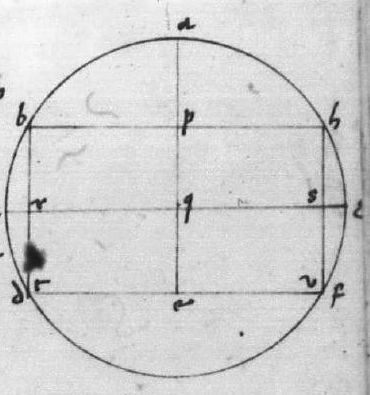 a
b p h
r q s c
d r e v f